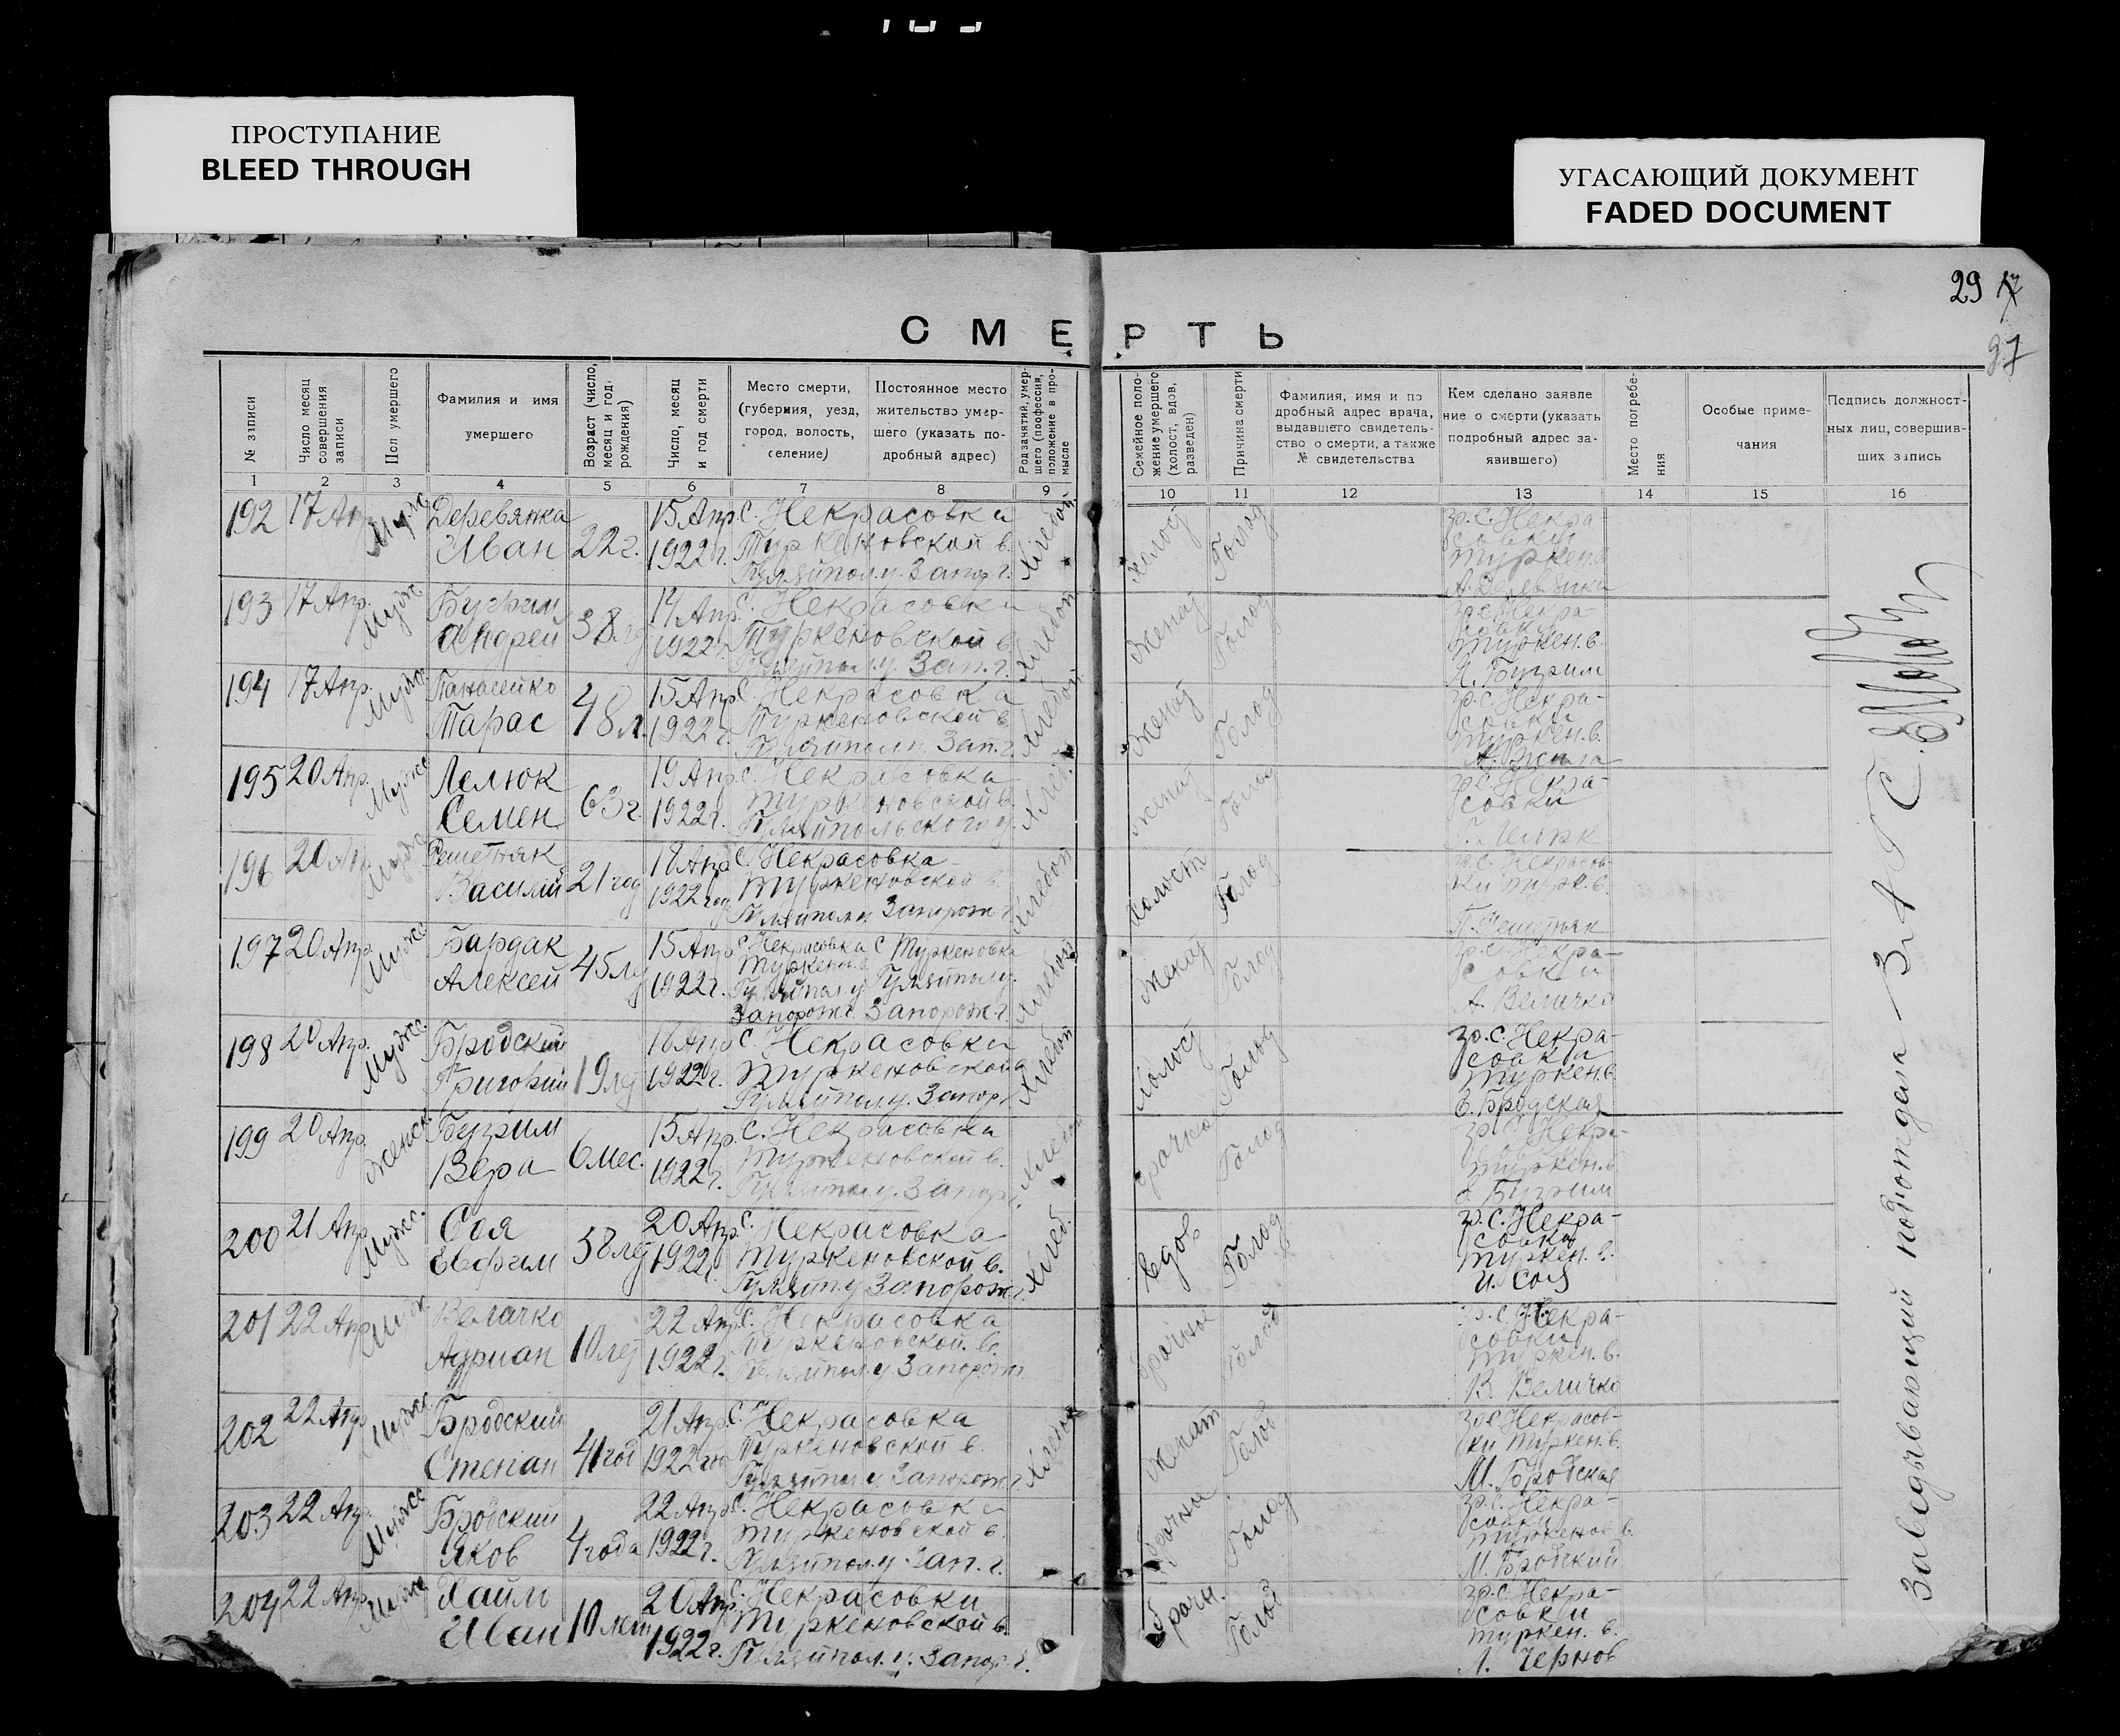 ПРОСТУПАНИЕ
BLEED THROUGH
УГАСАЮЩИЙ ДОКУМЕНТ
FADED DOCUMENT
29
37
СМЕРТЬ
№ записи
Число месяц совершения записи
Пол умершего
Фамилия и имя умершего
Возраст (число, месяц и год рождения)
Число, месяц и год смерти
Место смерти, (губерния, уезд, город, волость, селение)
Постоянное место жительство умершего (указать подробный адрес)
Род занятий, умершего (профессия, положение в промысле
Семейное положение умершего (холост, вдов, разведен)
Причина смерти
Фамилия, имя и подробный адрес врача, выдавшего свидетельство о смерти, а также № свидетельства
Кем сделано заявление о смерти (указать подробный адрес заявившего)
Место погребения
Особые примечания
Подпись должностных лиц, совершивших запись
1 2 3 4 5 6 7 8 9 10 11 12 13 14 15 16
192 17 Апр. Муж. Деревянка Иван 22 г. 15 Апр. 1922 г. с. Некрасовки Туркеновской в. Гуляйпол. у. Запор. г. Хлебоп. Холост Голод гр. с. Некрасовки Туркен. в. А. Деревянка
193 17 Апр. Мужс. Бугрим Андрей 38 лет 14 Апр. 1922 г. с. Некрасовки Туркеновской в. Гуляйпол. у. Зап. г. Хлебоп. Женат Голод гр. с. Некрасовки Туркен. в. Бугрим
194 17 Апр. Мужс. Панасейко Тарас 48 л. 15 Апр. 1922 г. с. Некрасовка Туркеновской в. Гуляйпол. Зап. г. Хлебоп. Женат Голод гр. с. Некрасовки Туркен. в.
195 20 Апр. Мужс. Лелюк Семен 63 г. 19 Апр. 1922 г. с. Некрасовка Туркеновской в. Гуляйпольского у. Хлеб. женат Голод гр. с. Некрасовки Г. Лелюк
196 20 Апр. Мужс. Решетняк Василий 21 год 18 Апр. 1922 год с. Некрасовка Туркеновской в. Гуляйполь. Запорож. г. Хлебоп. Холост Голод гр. с. Некрасовки Турк. в. П. Решетняк
197 20 Апр. Мужс. Бардак Алексей 45 лет 15 Апр. 1922 г. с. Некрасовка Туркен. в. Гуляйпол. у. Запорож. г. с. Туркеновка Гуляйпол. у. Запорож. г. Хлебоп. Женат Голод гр. с. Некрасовки А. Величко
198 20 Апр. Мужс. Бродский Григорий 19 лет 16 Апр. 1922 г. с. Некрасовки Туркеновской в. Гуляйпол. у. Запор. г. Хлебоп. Холост Голод гр. с. Некрасовки Туркен. в. Бродская
199 20 Апр. Женск. Бугрим Вера 6 мес. 15 Апр. 1922 г. с. Некрасовки Туркеновской в. Гуляйпол. у. Запор. Хлеб. Голод гр. с. Некрасовки Туркен. в. Бугрим
200 21 Апр. Мужс. Соя Евфим 58 лет 20 Апр. 1922 г. с. Некрасовка Туркеновской в. Гуляйп. у. Запорож. г. Хлеб. Вдов Голод гр. с. Некрасовки Туркен. в. И. Соя
201 22 Апр. Мужс. Величко Адриан 10 лет 22 Апр. 1922 г. с. Некрасовка Туркеновской в. Гуляйпол. у. Запорож. Голод гр. с. Некрасовки Туркен. в. В. Величко
202 22 Апр. Мужс. Бродский Степан 41 год 21 Апр. 1922 год с. Некрасовка Туркеновской в. Гуляйпол. у. Запорож. г. Хлебоп. Женат Голод гр. с. Некрасовки Туркен. в. М. Бродская
203 22 Апр. Мужс. Бродский Яков 4 года 22 Апр. 1922 г. с. Некрасовка Туркеновской в. Гуляйпол. у. Зап. г. Голод гр. с. Некрасовки Туркенов. в. М. Бродский
204 22 Апр. Мужс. Хайм Иван 10 лет 20 Апр. 1922 г. с. Некрасовки Туркеновской в. Гуляйпол. у. Запор. г. Голод гр. с. Некрасовки Туркен. в. Л. Чернов
Заведывающий подотделом ЗАГС